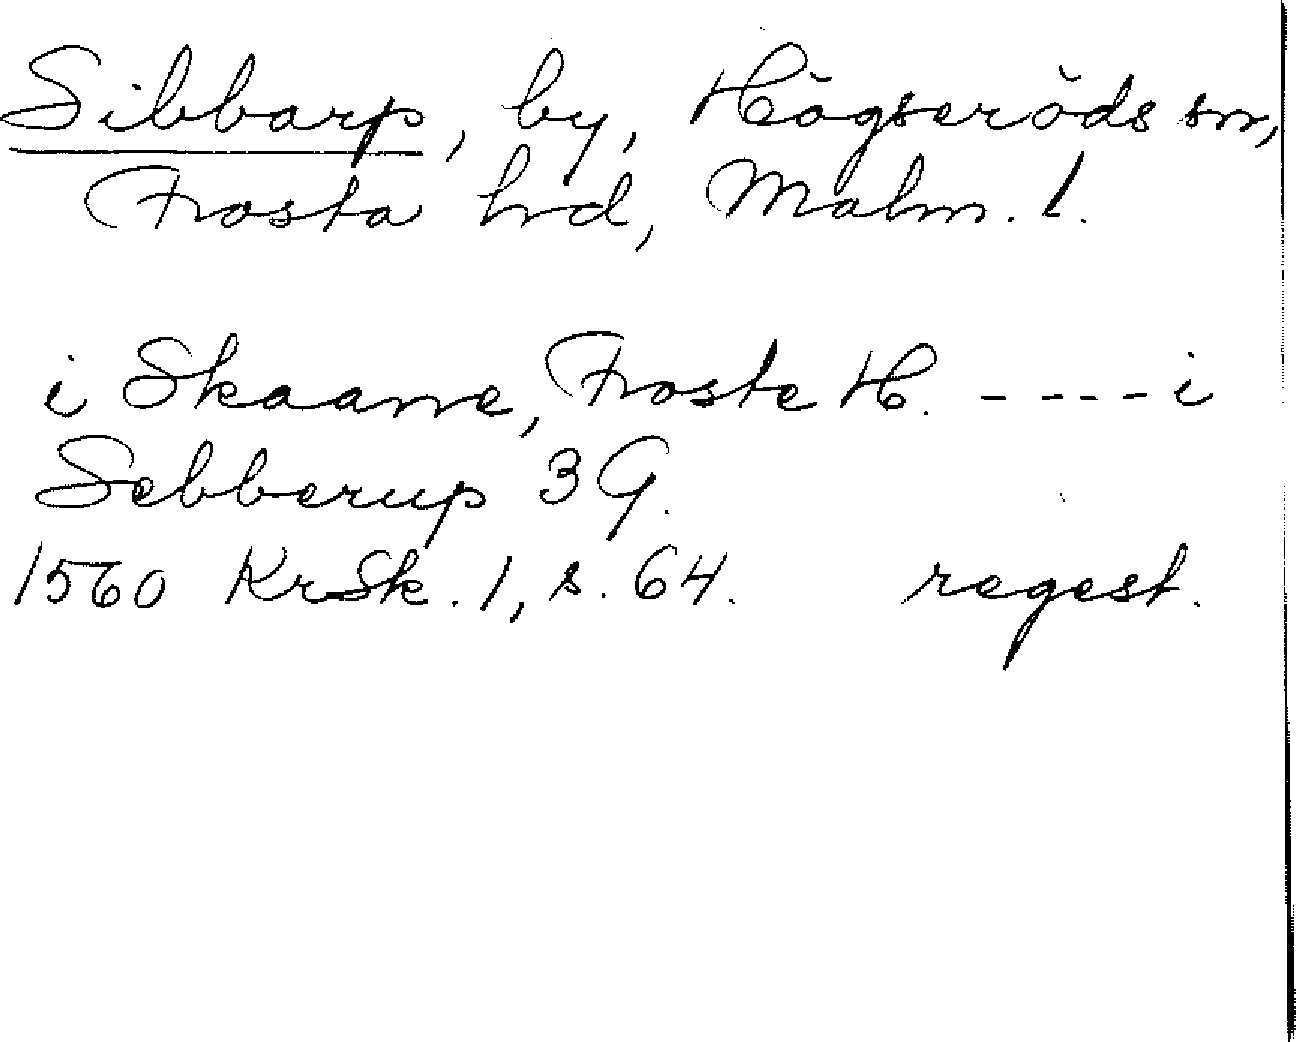 Sibbarp, by, Högseröds sn,
Frosta hrd, Malm. l.
i Skaane, Froste H. ---- i
Sebberup 3 G.
1560 KrSk. 1, s. 64. regest.